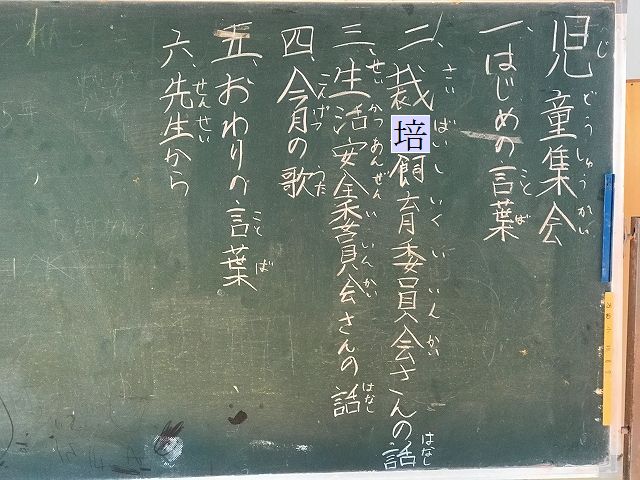 じどうしゅうかい
児童集会
ことば
一、はじめの言葉
さいばいしいくいいんかい はなし
二、裁培飼育委員会さんの話
せいかつあんぜんいいんかい はなし
三、生活安全委員会さんの話
こんげつ うた
四、今月の歌
ことば
五、おわりの言葉
せんせい
六、先生から